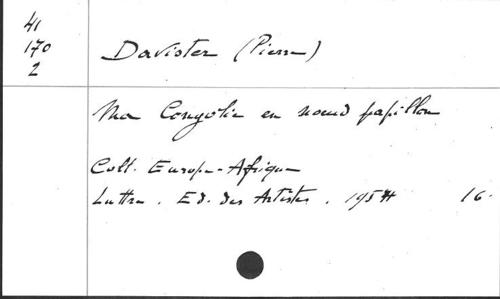 41
170
2
Davister (Pierre)
Ma Congolie en noeud papillon
Coll. Europe-Afrique
Luttre. Ed. des Artistes. 1954 16.